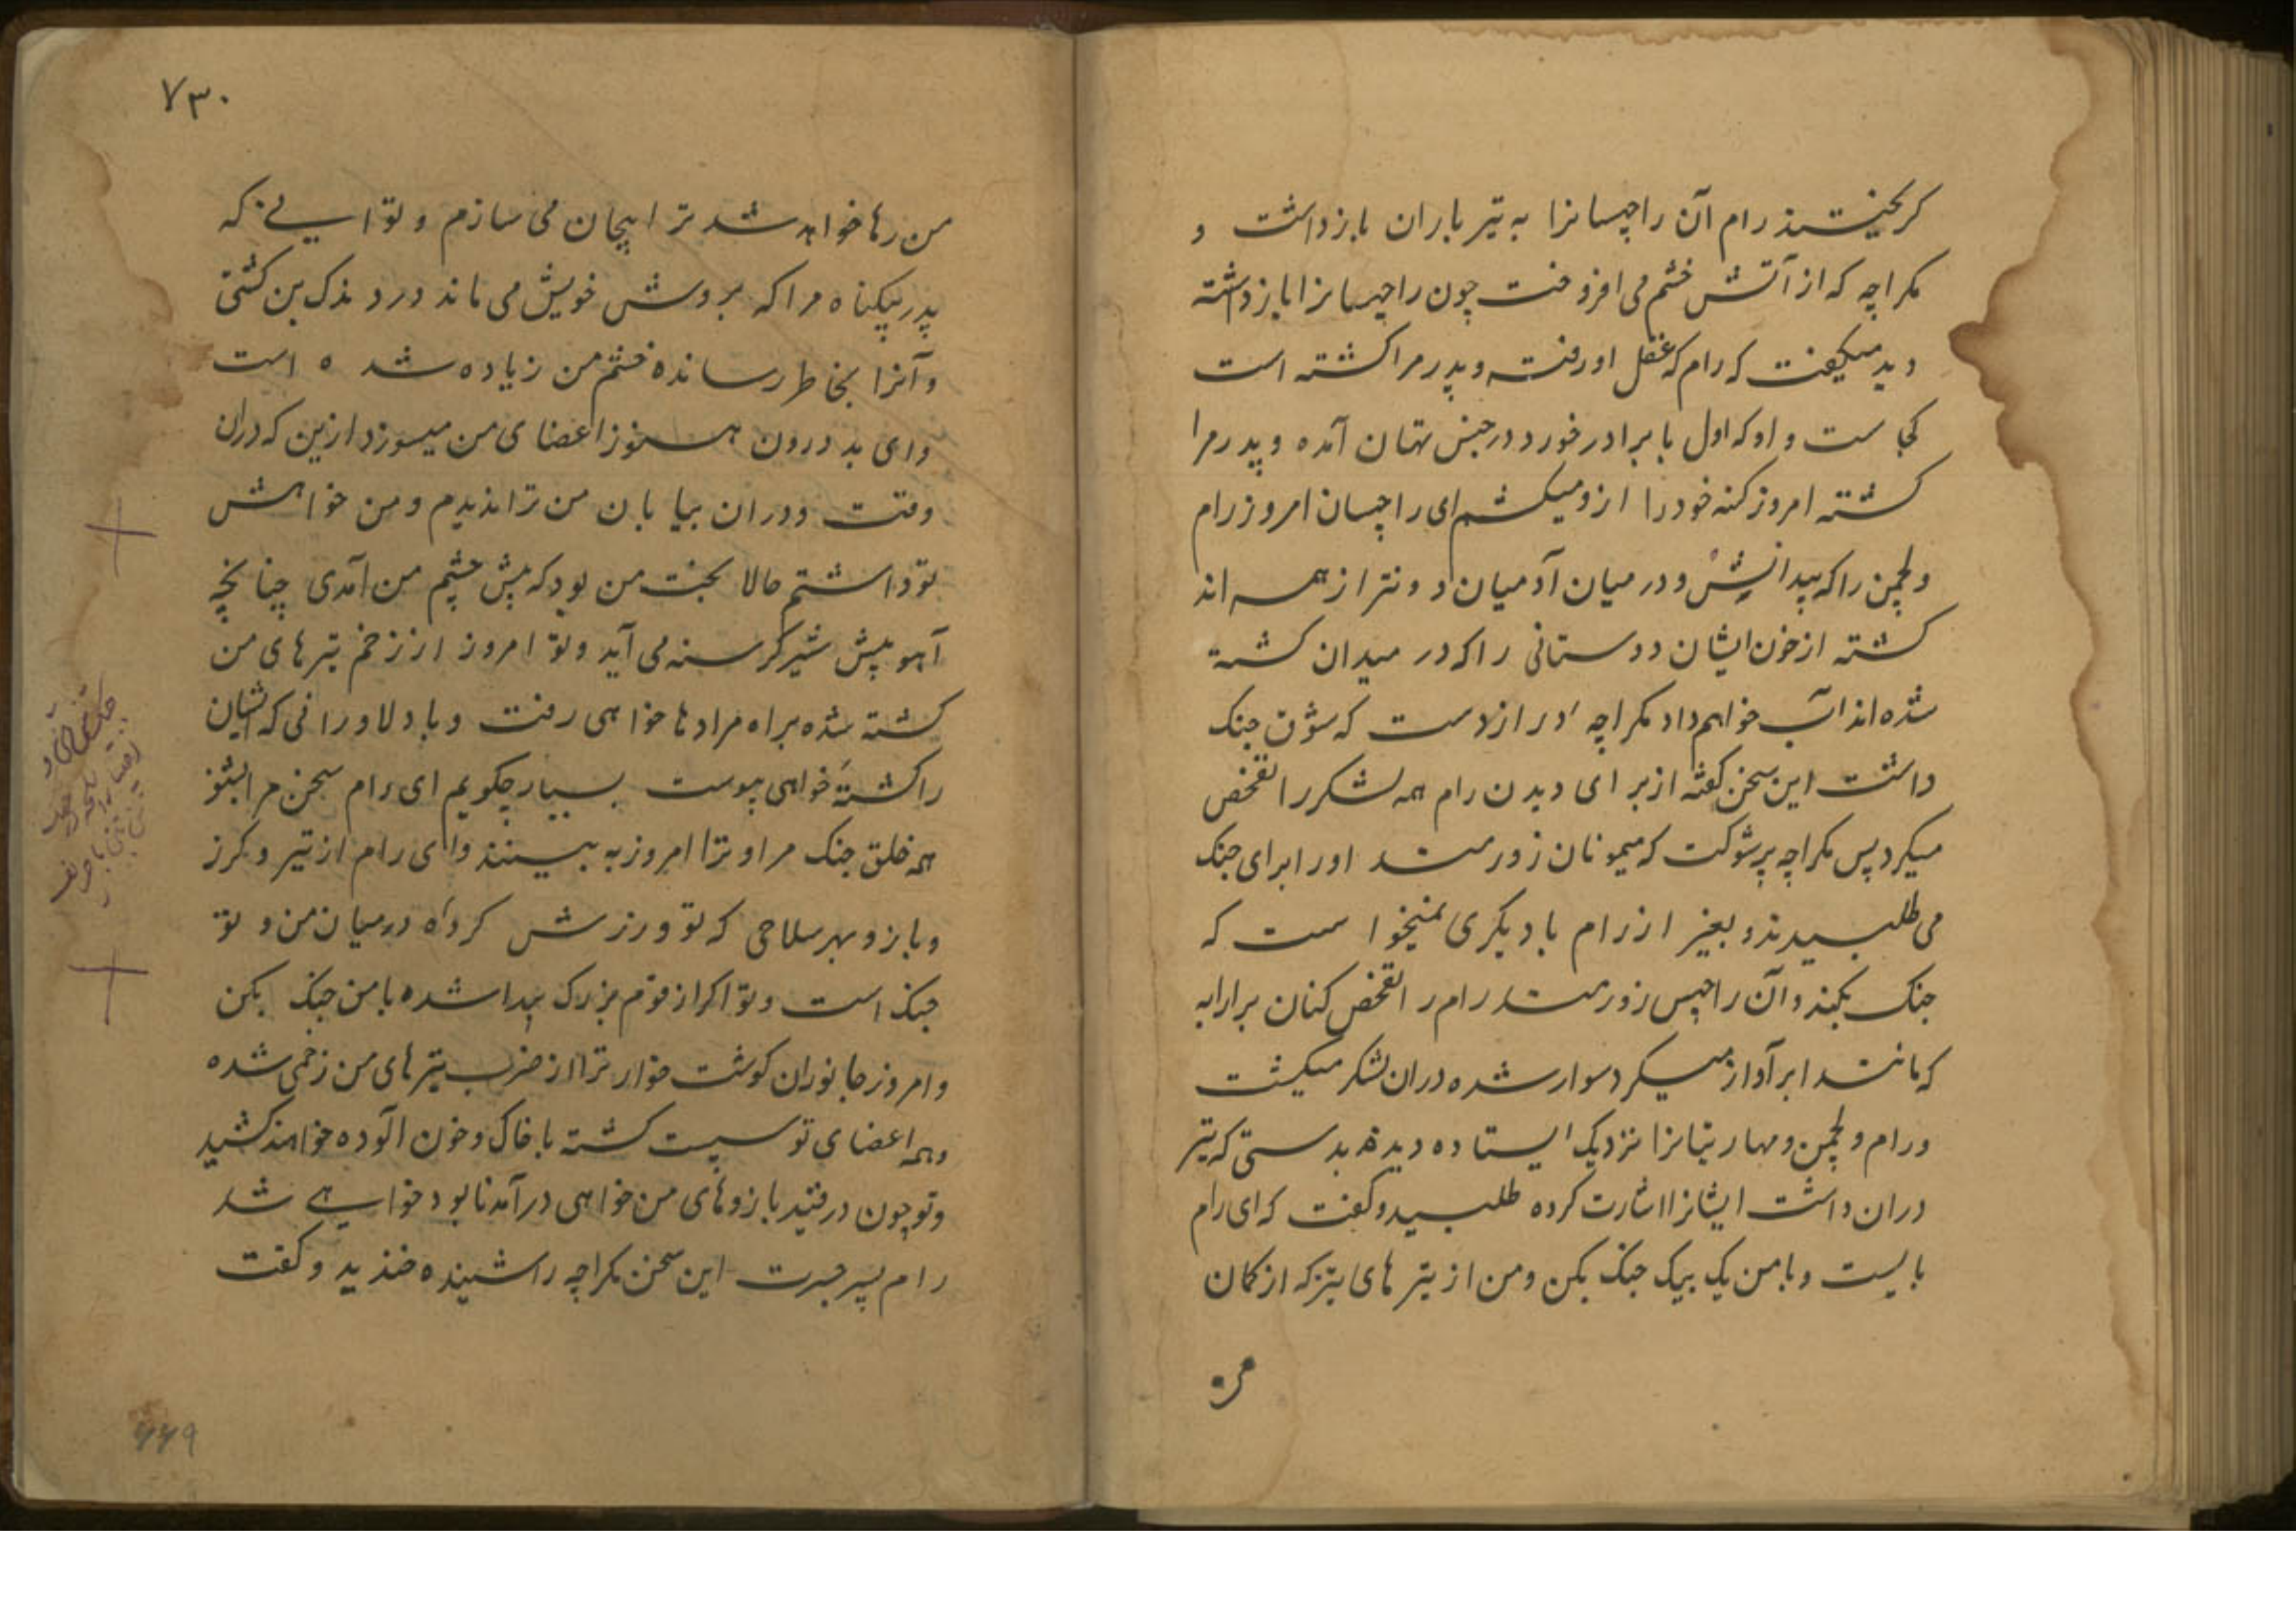 کریختند رام آن راچسانرا به تیر باران بازداشت و
مکراچه که از آتش خشم می افروخت چون راچسانرا بازداشته
دید میکفت که رام که عقل او رفته و پدر مرا کشته است
کجاست و او که اول با برادر خورد در جنس تهان آمده و پدر مرا
کشته امروز کنه خود را ازو میکشم ای راچسان امروز رام
و لچمن را که بیدانش و در میان آدمیان دونتر از همه اند
کشته از خون ایشان دوستانی را که در میدان کشته
شده اند آب خواهم داد مکراچه دراز دست که شوق جنک
داشت این سخن کفته از برای دیدن رام همه لشکر را تفحص
میکرد پس مکراچه پر شوکت که میمونان زورمند او را برای جنک
می طلبیدند و بغیر از رام با دیکری نمیخواست که
جنک بکند و آن راچس زورمند رام را تفحص کنان بر ارابه
که مانند ابر آواز میکرد سوار شده در ان لشکر میکشت
و رام و لچمن و مهارتیانرا نزدیک ایستاده دیده بدستی که تیر
در ان داشت ایشانرا اشارت کرده طلبید و کفت که ای رام
بایست و با من یک بیک جنک بکن و من از تیر های تیز که از کمان
من
۷۳۰
من رها خواهد شد ترا بیجان می سازم و تو ایی که
پدر بیکناه مرا که بروش خویش می ماند در دندک بن کشتی
و آنرا بخاطر رسانده خشم من زیاده شده است
وای بد درون هنوز اعضای من میسوزد ازین که دران
وقت و دران بیابان من ترا ندیدم و من خواهش
تو داشتم حالا بخت من بود که پیش چشم من آمدی چنانچه
آهو پیش شیر کرسنه می آید و تو امروز از زخم تیر های من
کشته شده براه مرادها خواهی رفت و با دلاورانی که ایشان
را کشته خواهی پیوست بسیار چکویم ای رام سخن مرا بشنو
همه خلق جنک مرا و ترا امروز به بینند و ای رام از تیر و کرز
و بازو بهر سلاحی که تو ورزش کرده در میان من و تو
جنک است و تو اکر از قوم بزرک پیدا شده با من جنک بکن
و امروز جانوران کوشت خوار ترا از ضرب تیر های من زخمی شده
و همه اعضای تو سست کشته با خاک و خون آلوده خواهند کشید
و تو چون در قید بازوهای من خواهی در آمد نابود خواهی شد
رام پسر جسرت این سخن مکراچه را شنیده خندید و کفت